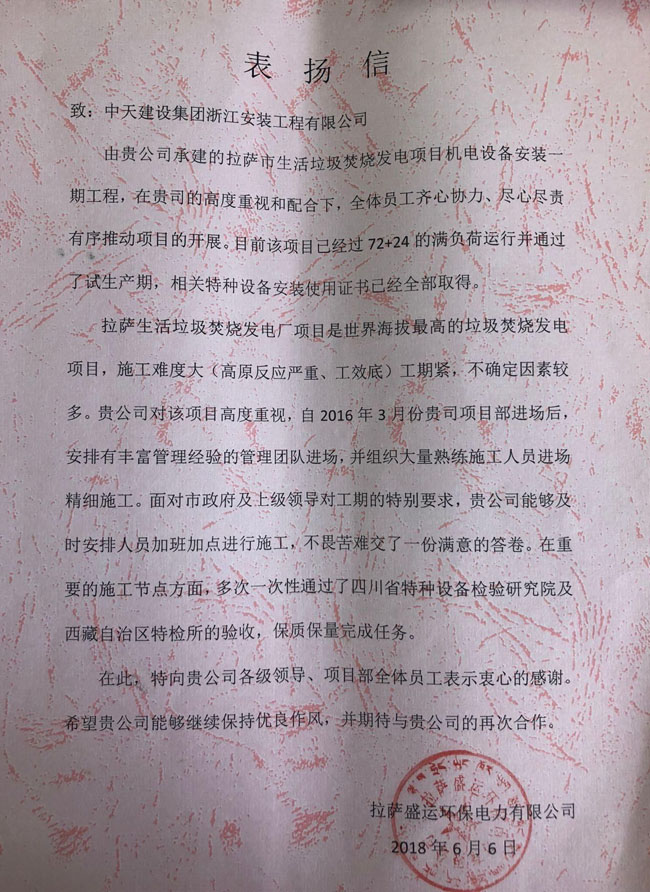 表扬信
致：中天建设集团浙江安装工程有限公司
由贵公司承建的拉萨市生活垃圾焚烧发电项目机电设备安装一
期工程，在贵司的高度重视和配合下，全体员工齐心协力、尽心尽责
有序推动项目的开展。目前该项目已经过 72+24 的满负荷运行并通过
了试生产期，相关特种设备安装使用证书已经全部取得。
拉萨生活垃圾焚烧发电厂项目是世界海拔最高的垃圾焚烧发电
项目，施工难度大（高原反应严重、工效底）工期紧，不确定因素较
多。贵公司对该项目高度重视，自 2016 年 3 月份贵司项目部进场后，
安排有丰富管理经验的管理团队进场，并组织大量熟练施工人员进场
精细施工。面对市政府及上级领导对工期的特别要求，贵公司能够及
时安排人员加班加点进行施工，不畏苦难交了一份满意的答卷。在重
要的施工节点方面，多次一次性通过了四川省特种设备检验研究院及
西藏自治区特检所的验收，保质保量完成任务。
在此，特向贵公司各级领导、项目部全体员工表示衷心的感谢。
希望贵公司能够继续保持优良作风，并期待与贵公司的再次合作。
拉萨盛运环保电力有限公司
2018 年 6 月 6 日